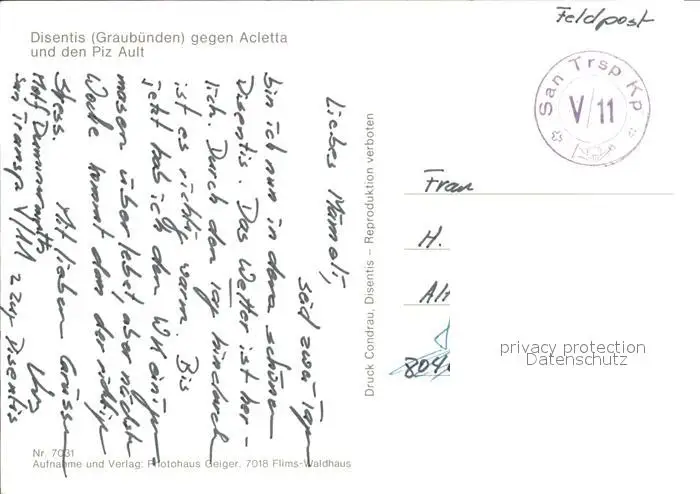 Disentis (Graubünden) gegen Acletta
und den Piz Ault
Feldpost
San Trsp Kp
V/11
Liebes Mämeli,
Seid zwei Tagen
bin ich nun in dem schönen
Disentis. Das Wetter ist herr-
lich. Durch den Tag hindurch
ist es richtig warm. Bis
jetzt hab ich den WK einiger-
massen überlebt, aber nächste
Woche kommt dann der richtige
Stress. Mit lieben Grüssen
Urs
San Transp V/11 z Zt Disentis
Druck Condrau, Disentis – Reproduktion verboten
Frau
H.
804
privacy protection
Datenschutz
Nr. 7031
Aufnahme und Verlag: Photohaus Geiger, 7018 Flims-Waldhaus